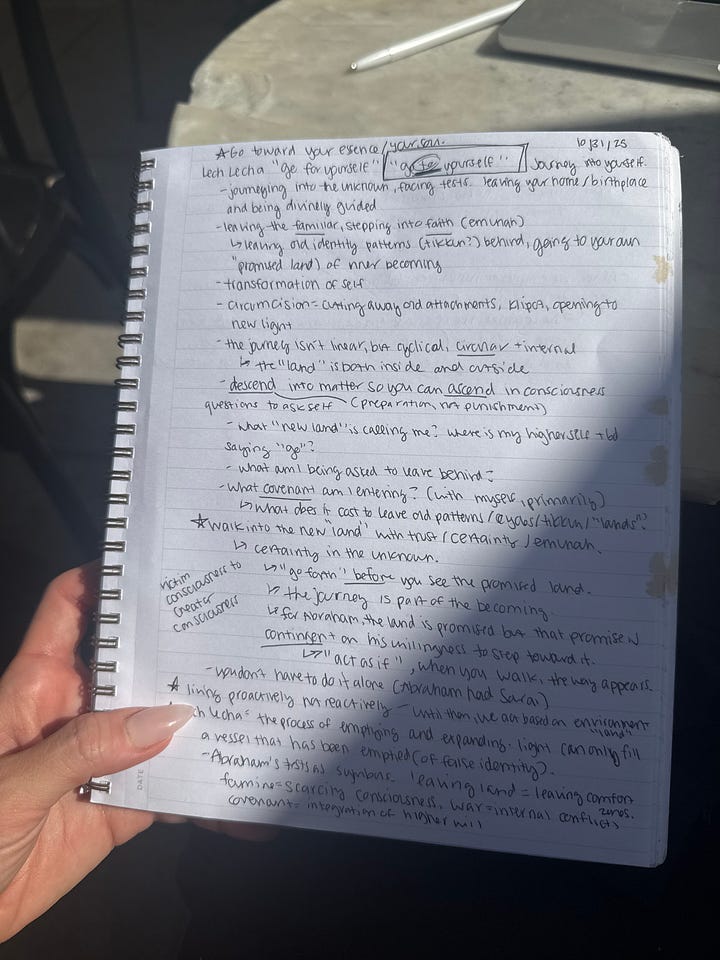 ☆Go toward your essence/your son. 10/31/25
Lech Lecha "go for yourself" "go to yourself" Journey into yourself.
- journeying into the unknown, facing tests. leaving your home/birthplace
and being divinely guided
- leaving the familiar, stepping into faith (emunah)
↳ leaving old identity patterns (tikkun?) behind, going to your own
"promised land) of inner becoming
- transformation of self
- circumcision = cutting away old attachments, klipot, opening to
new light
- the journey isn't linear, but cyclical, circular + internal
↳ the "land" is both inside and outside
- descend into matter so you can ascend in consciousness
questions to ask self (preparation, not punishment)
- what "new land" is calling me? where is my higher self +
saying "go"?
- what am I being asked to leave behind?
- what covenant am I entering? (with myself, primarily)
↳ what does it cost to leave old patterns/ /tikkun/"lands"?
☆ walk into the new "land" with trust/certainty/emunah.
↳ certainty in the unknown.
↳ "go forth" before you see the promised land.
↳ the journey is part of the becoming.
↳ for Abraham the land is promised but that promise is
contingent on his willingness to step toward it.
↳ "act as if", when you walk, the way appears.
victim
consciousness to
creator
consciousness
- you don't have to do it alone (Abraham had Sarai)
☆ living proactively not reactively - until then, we act based on environment
"land"
ch Lecha = the process of emptying and expanding. light can only fill
a vessel that has been emptied (of false identity).
- Abraham's tests as symbols. leaving land = leaving comfort
zones.
famine = scarcity consciousness. war = internal conflicts
covenant = integration of higher will
DATE